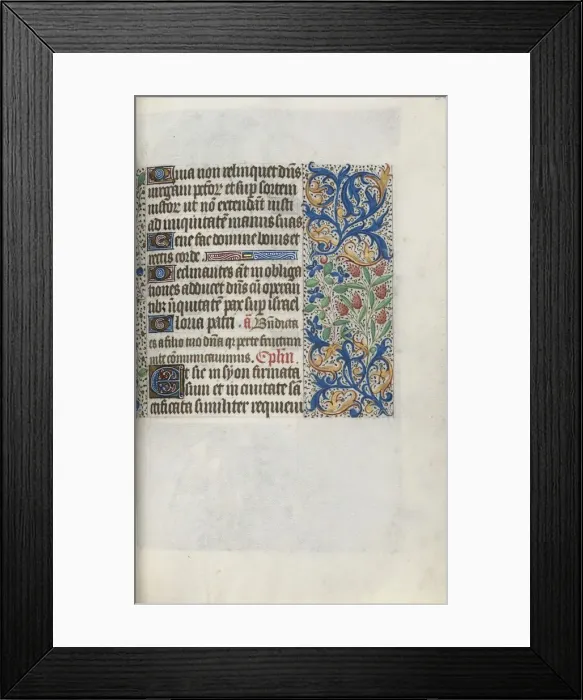 Quia non relinquet dn̄s
uirgam pctor̄ et sup sortem
iustor̄ ut nō extendāt iusti
ad iniquitatē manus suas
Bene fac domine bonis et
rectis corde.
Declinantes aūt in obliga
tiones adducet dn̄s cū operan
tibȝ īiquitatē pax sup israel
Gloria patri. ā Benedicta
es a filio tuo dn̄a qr p te fructum
vite cōmunicauimus. Epl̄m
Et sic in syon firmata
sum et in ciuitate sa
ctificata similiter requieui